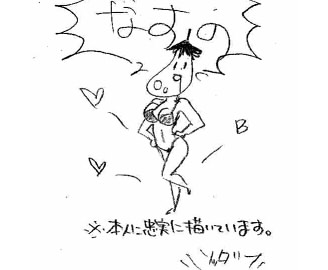 なすの
B
※本人に忠実に描いています。
ソックリッ